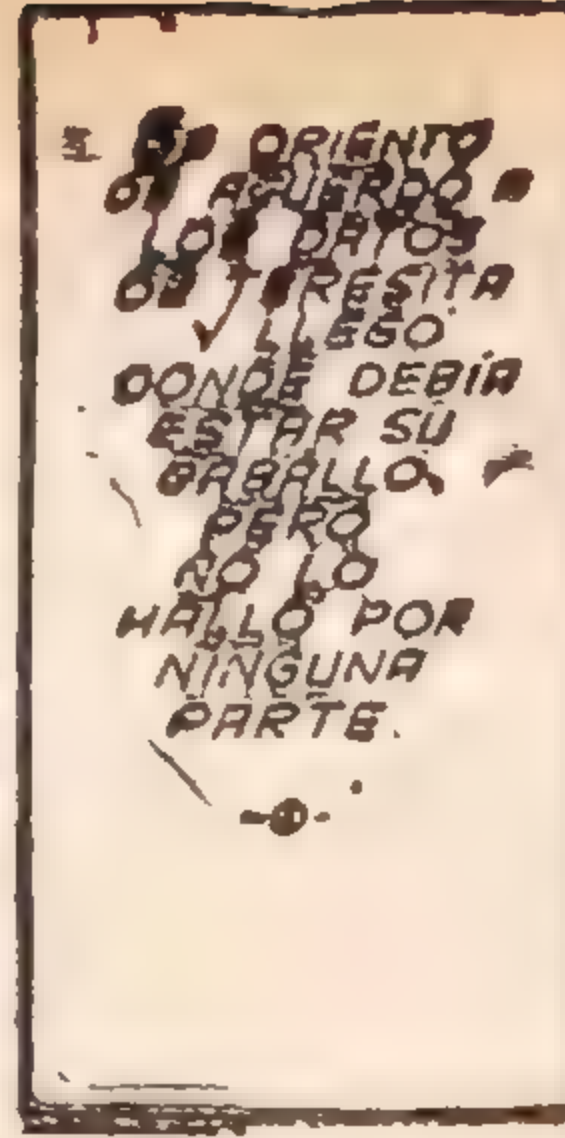 ORIENTO
DE ACUERDO A
LOS DATOS
DE TERESITA
Y LLEGO
DONDE DEBIA
ESTAR SU
CABALLO,
PERO
NO LO
HALLO POR
NINGUNA
PARTE.